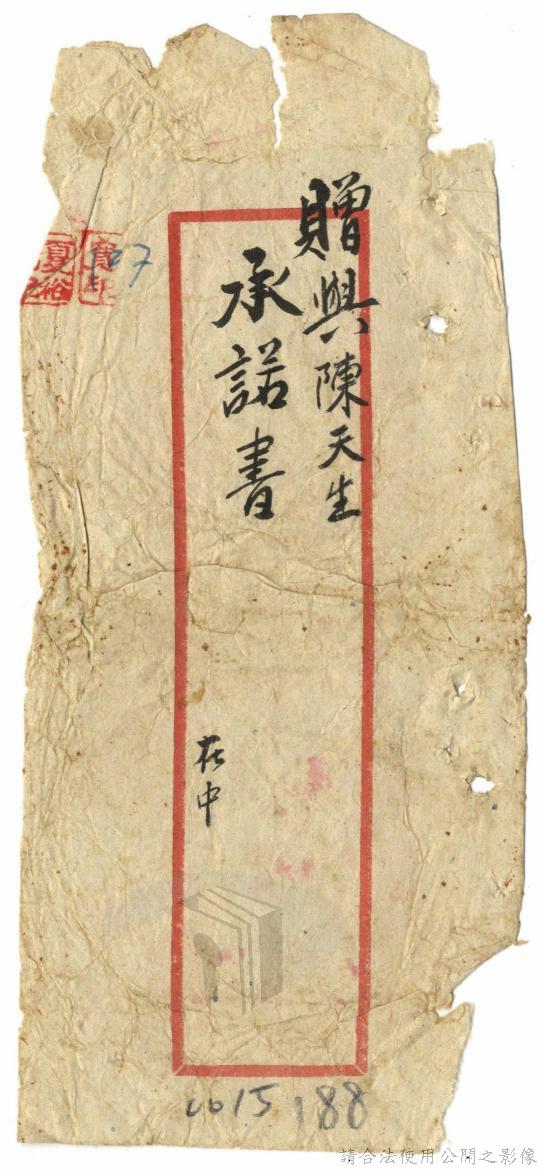 贈與陳天生
承諾書
在中
107
0015
188
請合法使用公開之影像